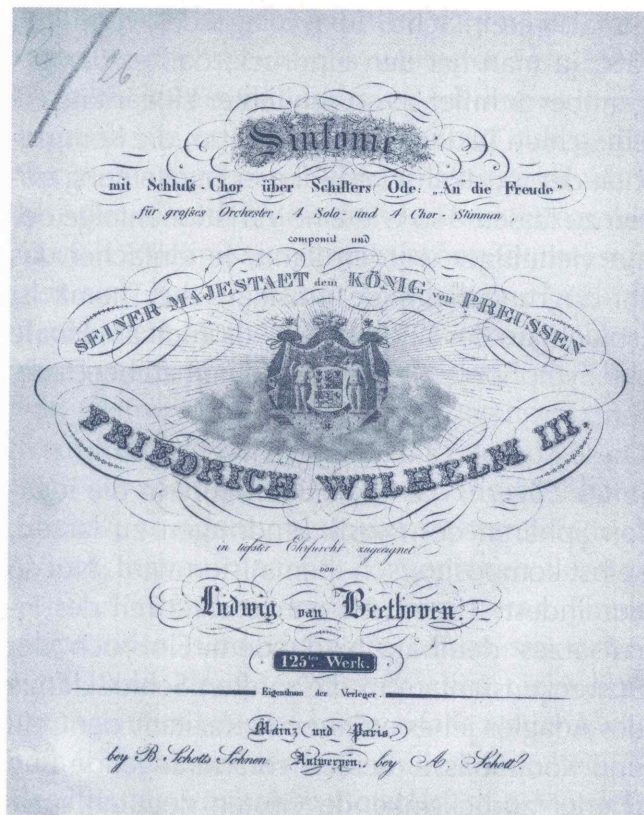 26
Sinfonie
mit Schluſs-Chor über Schillers Ode: „An die Freude“
für groſses Orchester, 4 Solo- und 4 Chor-Stimmen
componirt und
SEINER MAJESTAET dem KÖNIG von PREUSSEN
FRIEDRICH WILHELM III.
in tiefster Ehrfurcht zugeeignet
von
Ludwig van Beethoven.
125tes Werk.
Eigenthum der Verleger.
Mainz und Paris,
bey B. Schotts Söhnen. Antwerpen, bey A. Schott.